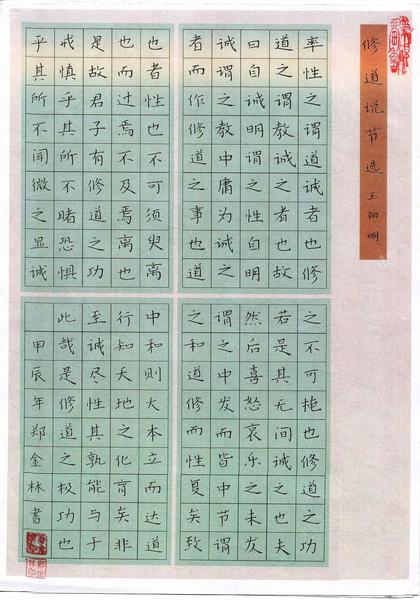 修道说节选 王阳明
率性之谓道诚者也修
道之谓教诚之者也故
曰自诚明谓之性自明
诚谓之教中庸为诚之
者而作修道之事也道
也者性也不可须臾离
也而过焉不及焉离也
是故君子有修道之功
戒慎乎其所不睹恐惧
乎其所不闻微之显诚
之不可掩也修道之功
若是其无间诚之也夫
然后喜怒哀乐之未发
谓之中发而皆中节谓
之和道修而性复矣致
中和则大本立而达道
行知天地之化育矣非
至诚尽性其孰能与于
此哉是修道之极功也
甲辰年郑金林书